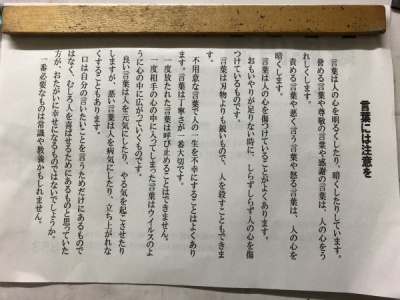 言葉には注意を
言葉は人の心を明るくしたり、暗くしたりしています。
誉める言葉や尊敬の言葉や感謝の言葉は、人の心をう
れしくします。
責める言葉や悪く言う言葉や怒る言葉は、人の心を
暗くします。
言葉は人の心を傷つけていることがよくあります。
おもいやりが足りない時に、しらずしらず人の心を傷
つけているのです。
言葉は刃物よりも鋭いもので、人を殺すこともできま
す。言葉は丁寧さが一番大切です。
不用意な言葉で人の一生を不幸にすることはよくあり
ます。
一度放たれた言葉は呼び止めることはできません。
一度相手の心の中に入ってしまった言葉はウイルスのよ
うに心の中に広がっていくものです。
良い言葉は人を元気にしたり、やる気を起こさせたり
しますが、悪い言葉は人を病気にしたり、立ち上がれな
くすることもあります。
口は自分の言いたいことを言うためだけにあるもので
はなく、むしろ人を喜ばせるためにあるものと思っていた
方が、おたがいに幸せになるのではないでしょうか。
一番必要なものは常識や教養かもしれません。